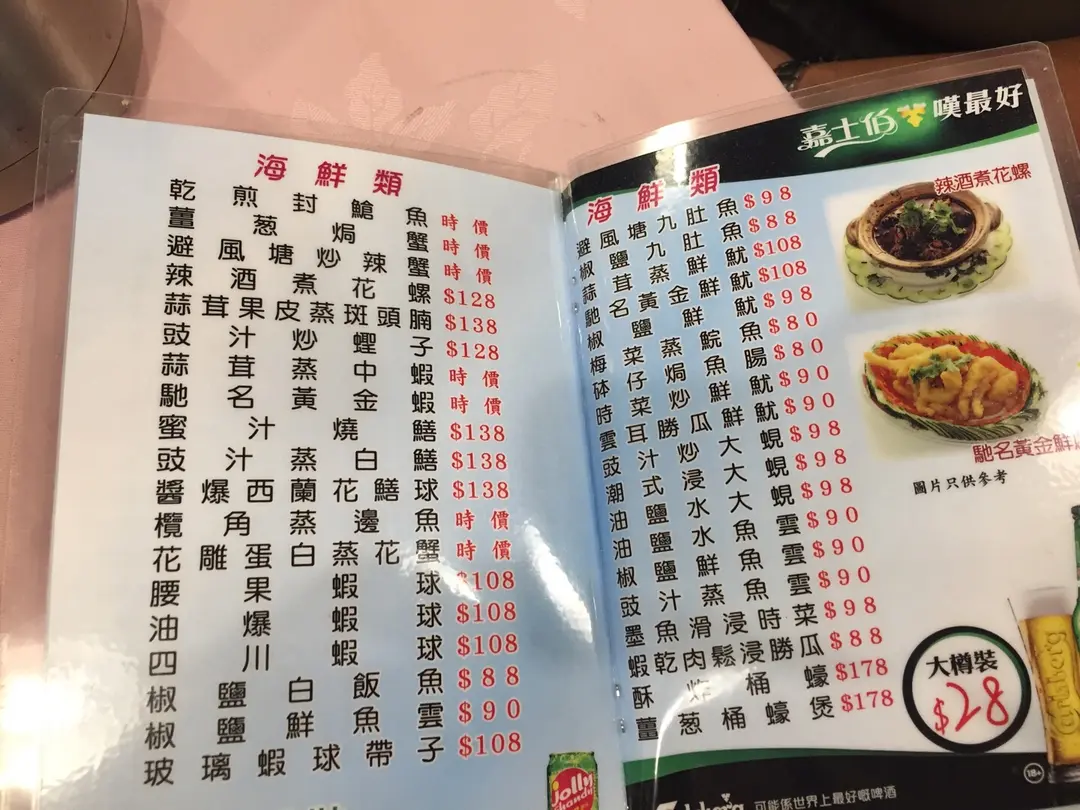 海鮮類
乾煎封鯧魚 時價
薑葱焗蟹 時價
避風塘炒辣蟹 時價
辣酒煮花螺 $128
蒜茸果皮蒸斑頭腩 $138
豉汁炒蟶子 $128
蒜茸蒸中蝦 時價
馳名黃金蝦 時價
蜜汁燒鱔 $138
豉汁蒸白鱔 $138
醬爆西蘭花鱔球 $138
欖角蒸邊魚 時價
花雕蛋白蒸花蟹 時價
腰果蝦球 $108
油爆蝦球 $108
四川蝦球 $108
椒鹽白飯魚 $88
椒鹽鮮魚雲 $90
玻璃蝦球帶子 $108
jolly
shandy
嘉士伯 嘆最好
海鮮類
避風塘九肚魚 $98
椒鹽九肚魚 $88
蒜茸蒸鮮魷 $108
馳名黃金鮮魷 $108
椒鹽鮮魷 $98
梅菜蒸鯇魚 $80
砵仔焗魚腸 $80
時菜炒鮮魷 $90
雲耳勝瓜鮮魷 $90
豉汁炒大蜆 $98
潮式浸大蜆 $98
油鹽水大蜆 $98
油鹽水魚雲 $90
椒鹽鮮魚雲 $90
豉汁蒸魚雲 $90
墨魚滑浸時菜 $98
蝦乾肉鬆浸勝瓜 $88
酥炸桶蠔 $178
薑葱桶蠔煲 $178
辣酒煮花螺
馳名黃金鮮
圖片只供參考
大樽裝
$28
Carlsberg
18+
可能係世界上最好嘅啤酒